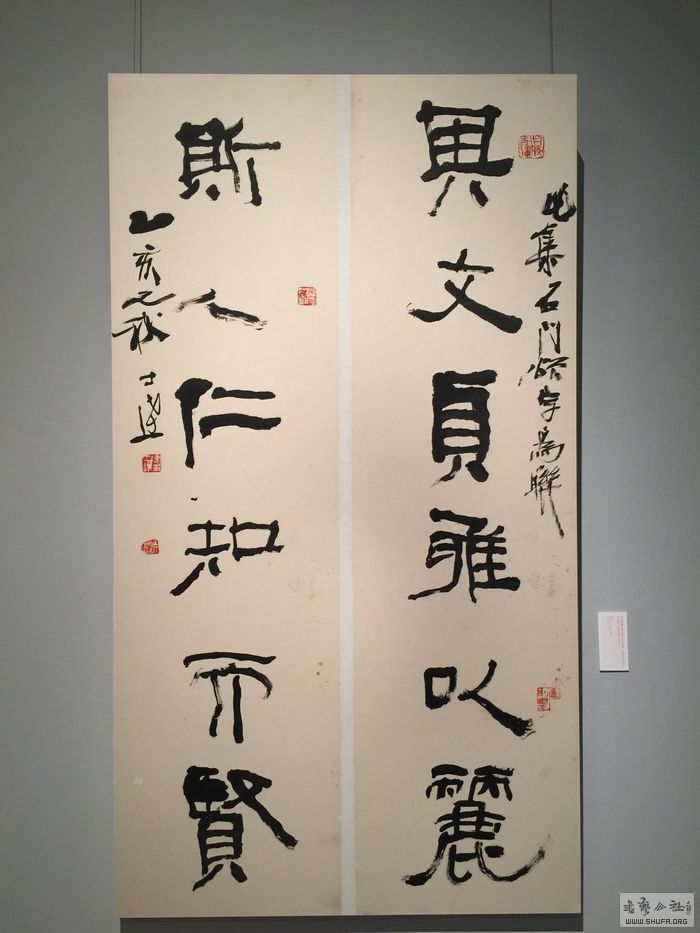 其文貞雅以麗
集石門頌字為聯
斯人仁知而賢
乙亥之秋 士達
書法公社
WWW.SHUFA.ORG